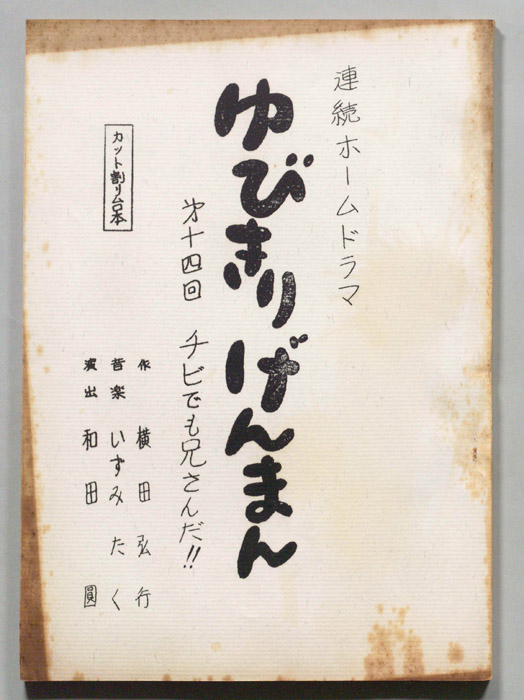 連続ホームドラマ
ゆびきりげんまん
第十四回 チビでも兄さんだ!!
カット割り台本
作 横田弘行
音楽 いずみたく
演出 和田 圓